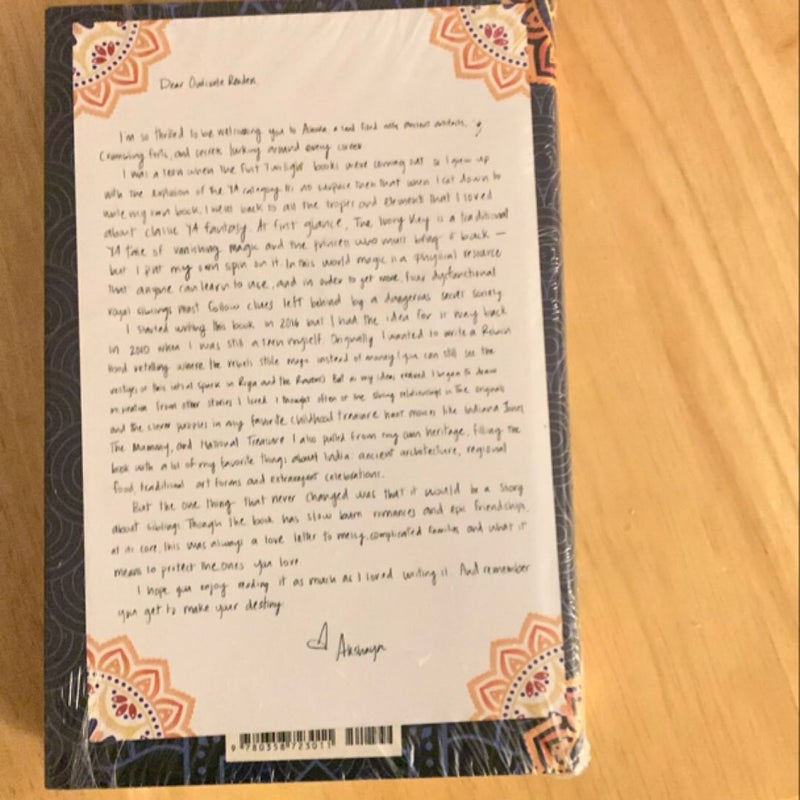 Dear OwlCrate Reader,
I'm so thrilled to be welcoming you to Ashoka, a land filled with ancient artifacts,
crumbling forts, and secrets lurking around every corner.
I was a teen when the first Twilight books were coming out so I grew up
with the explosion of the YA category. It's no surprise then that when I sat down to
write my own book, I went back to all the tropes and elements that I loved
about classic YA fantasy. At first glance, The Ivory Key is a traditional
YA tale of vanishing magic and the princess who must bring it back —
but I put my own spin on it. In this world magic is a physical resource
that anyone can learn to use, and in order to get more, four dysfunctional
royal siblings must follow clues left behind by a dangerous secret society.
I started writing this book in 2016 but I had the idea for it way back
in 2010 when I was still a teen myself. Originally I wanted to write a Robin
Hood retelling where the rebels stole magic instead of money (you can still see the
vestiges of this initial spark in Riya and the Ravens). But as my ideas evolved, I began to draw
inspiration from other stories I loved. I thought often of the sibling relationships in The Originals
and the clever puzzles in my favorite childhood treasure hunt movies like Indiana Jones,
The Mummy, and National Treasure. I also pulled from my own heritage, filling the
book with a lot of my favorite things about India: ancient architecture, regional
food, traditional art forms and extravagant celebrations.
But the one thing that never changed was that it would be a story
about siblings. Though the book has slow burn romances and epic friendships,
at its core, this was always a love letter to messy, complicated families and what it
means to protect the ones you love.
I hope you enjoy reading it as much as I loved writing it. And remember
you get to make your destiny.
Akshaya
9 780358 723011